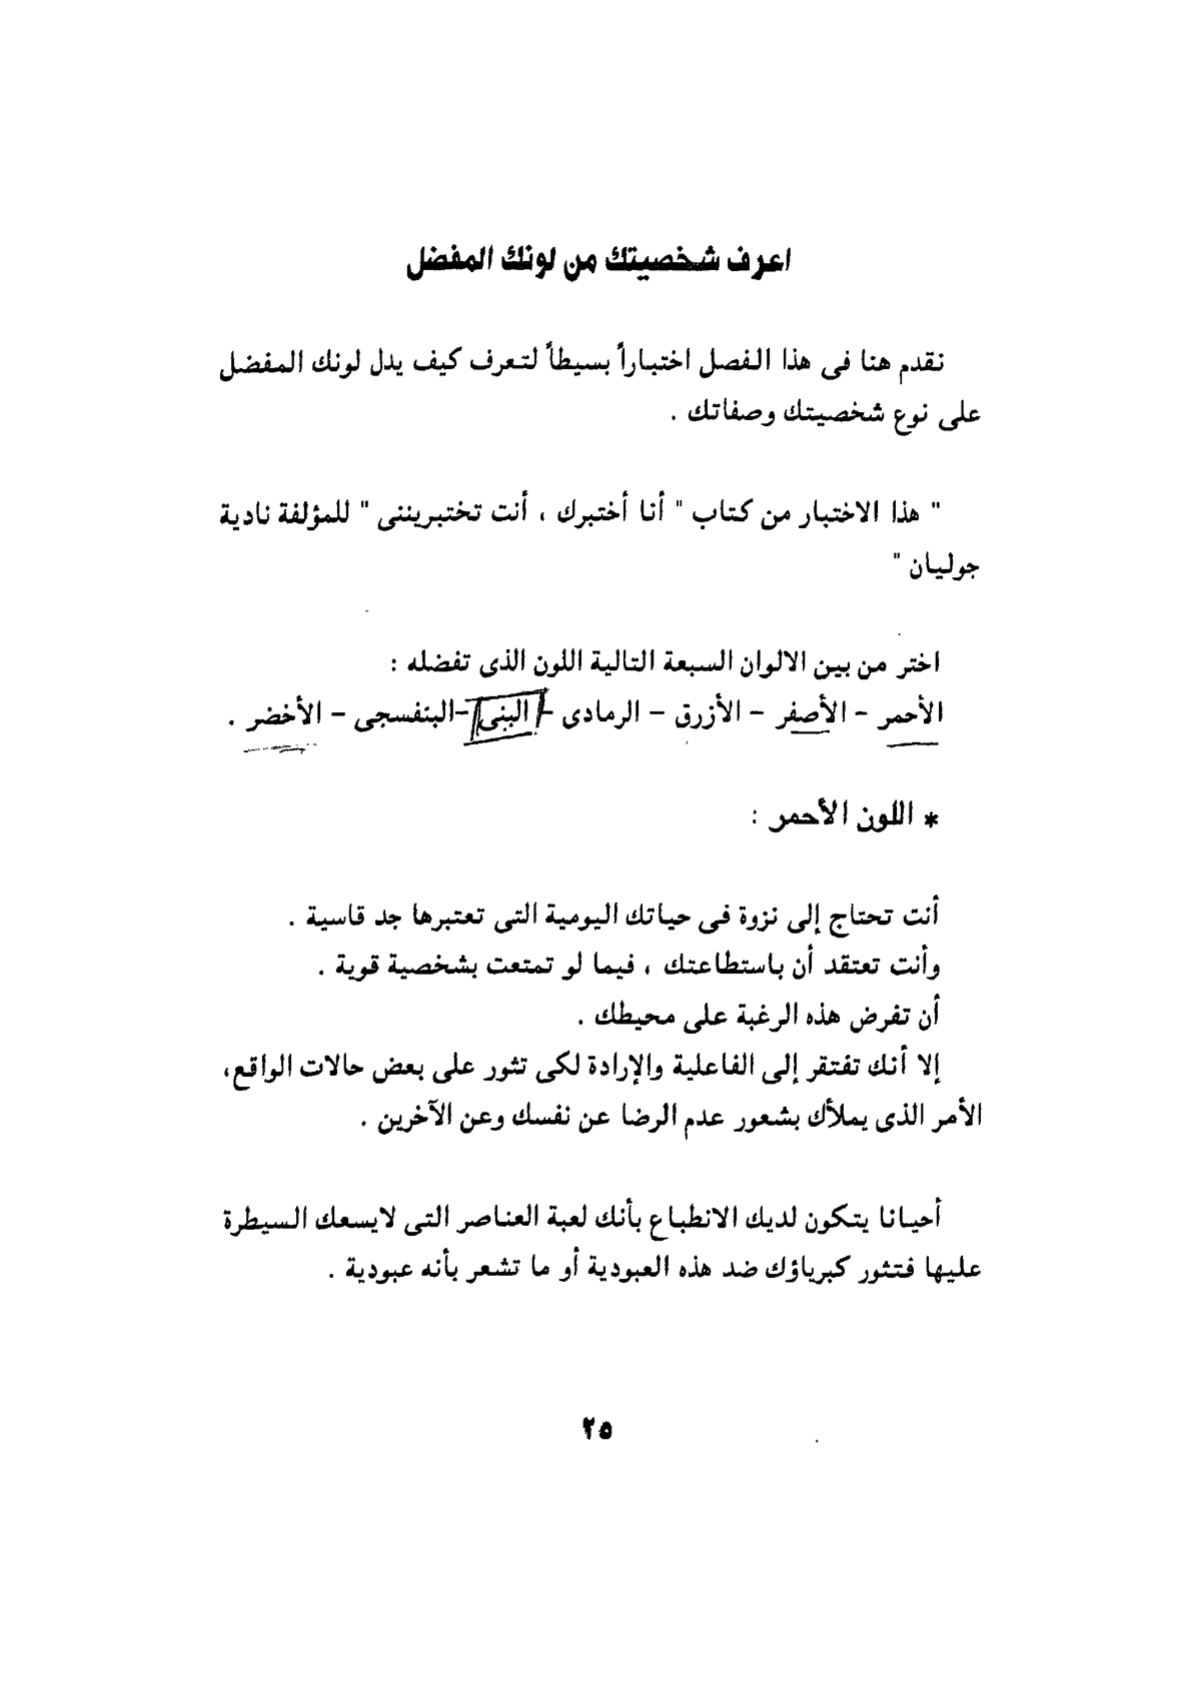 اعرف شخصيتك من لونك المفضل
نقدم هنا فى هذا الفصل اختباراً بسيطاً لتعرف كيف يدل لونك المفضل
على نوع شخصيتك وصفاتك .
" هذا الاختبار من كتاب " أنا أختبرك ، أنت تختبريننى " للمؤلفة نادية
جوليان "
اختر من بين الالوان السبعة التالية اللون الذى تفضله :
الأحمر – الأصفر – الأزرق – الرمادى – البنى –البنفسجى – الأخضر .
* اللون الأحمر :
أنت تحتاج إلى نزوة فى حياتك اليومية التى تعتبرها جد قاسية .
وأنت تعتقد أن باستطاعتك ، فيما لو تمتعت بشخصية قوية .
أن تفرض هذه الرغبة على محيطك .
إلا أنك تفتقر إلى الفاعلية والإرادة لكى تثور على بعض حالات الواقع،
الأمر الذى يملأك بشعور عدم الرضا عن نفسك وعن الآخرين .
أحيانا يتكون لديك الانطباع بأنك لعبة العناصر التى لايسعك السيطرة
عليها فتثور كبرياؤك ضد هذه العبودية أو ما تشعر بأنه عبودية .
٢٥